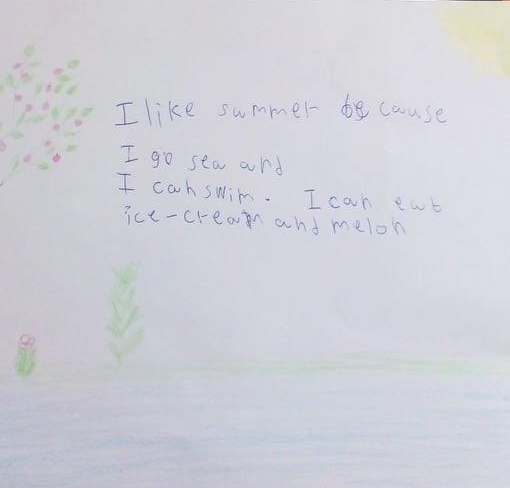 I like summer because
I go sea and
I can swim. I can eat
ice-cream and melon